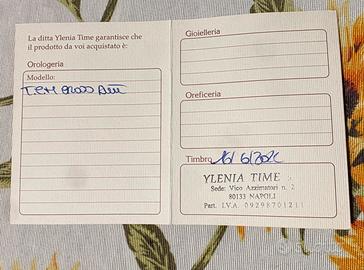 La ditta Ylenia Time garantisce che
il prodotto da voi acquistato è:
Orologeria
Modello:
Gioielleria
Oreficeria
Timbro
YLENIA TIME
Sede: Vico Azzimatori n. 2
80133 NAPOLI
Part. I.V.A. 09298701211